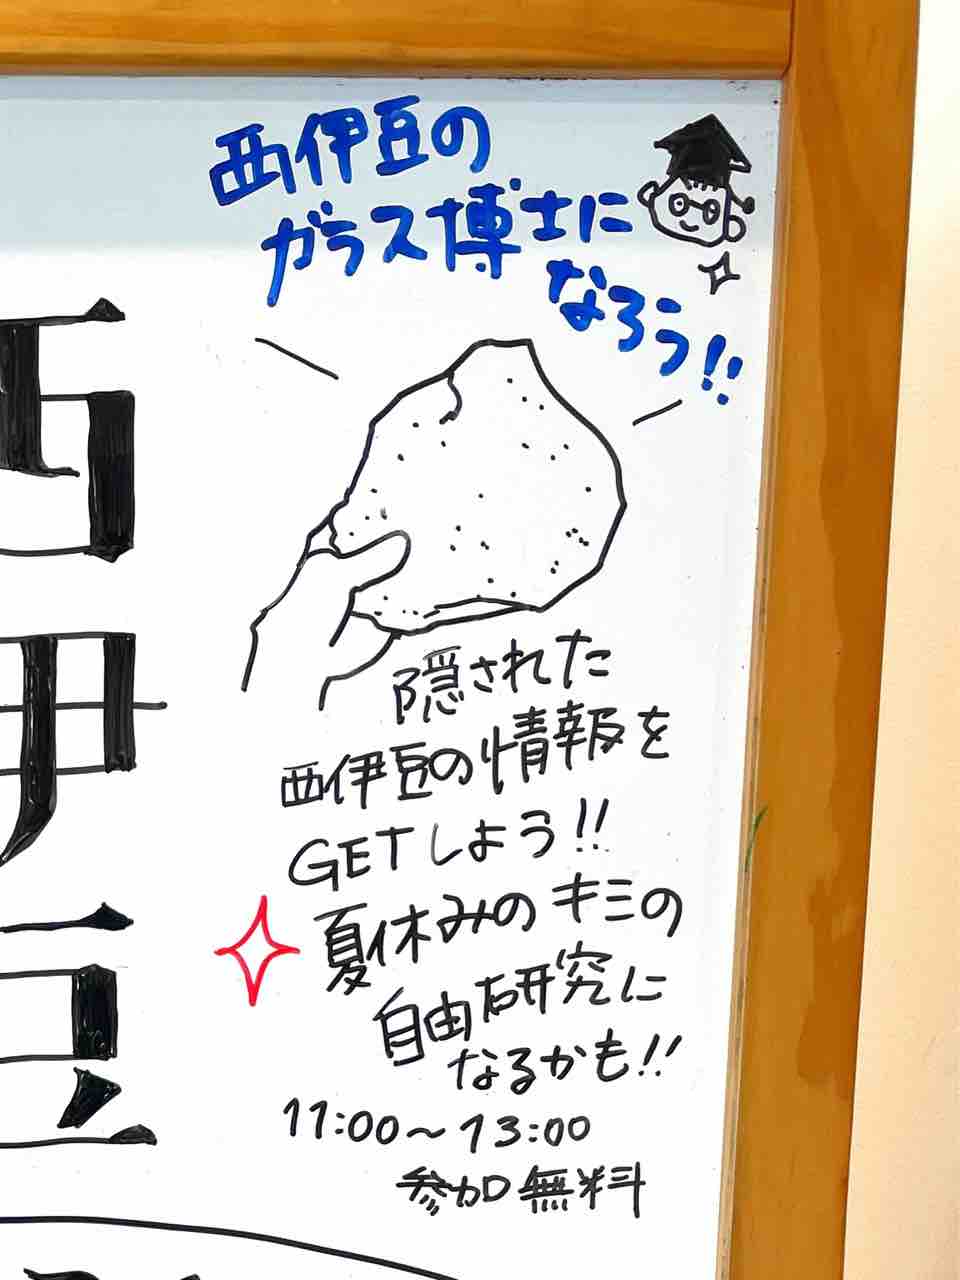 西伊豆の
ガラス博士に
なろう!!
隠された
西伊豆の情報を
GETしよう!!
夏休みのキミの
自由研究に
なるかも!!
11:00〜13:00
参加無料
西
伊
豆